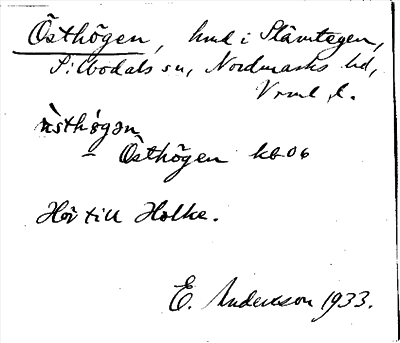 Östhögen, hmd i Slämtegen,
Silbodals sn, Nordmarks hd,
Vrml. l.
östhögen
– Östhögen kb 06
Hör till Holke.
E. Andersson 1933.